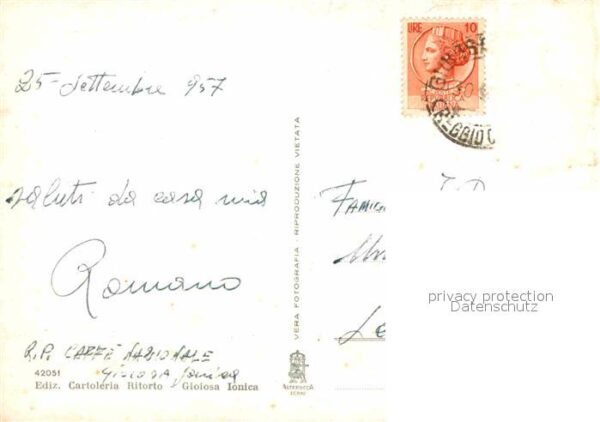 25 Settembre 957
saluti da casa mia
Romano
R.P. CAFFÈ NAZIONALE
Gioiosa Jonica
42051
Ediz. Cartoleria Ritorto - Gioiosa Ionica
VERA FOTOGRAFIA - RIPRODUZIONE VIETATA
LIRE 10
privacy protection
Datenschutz